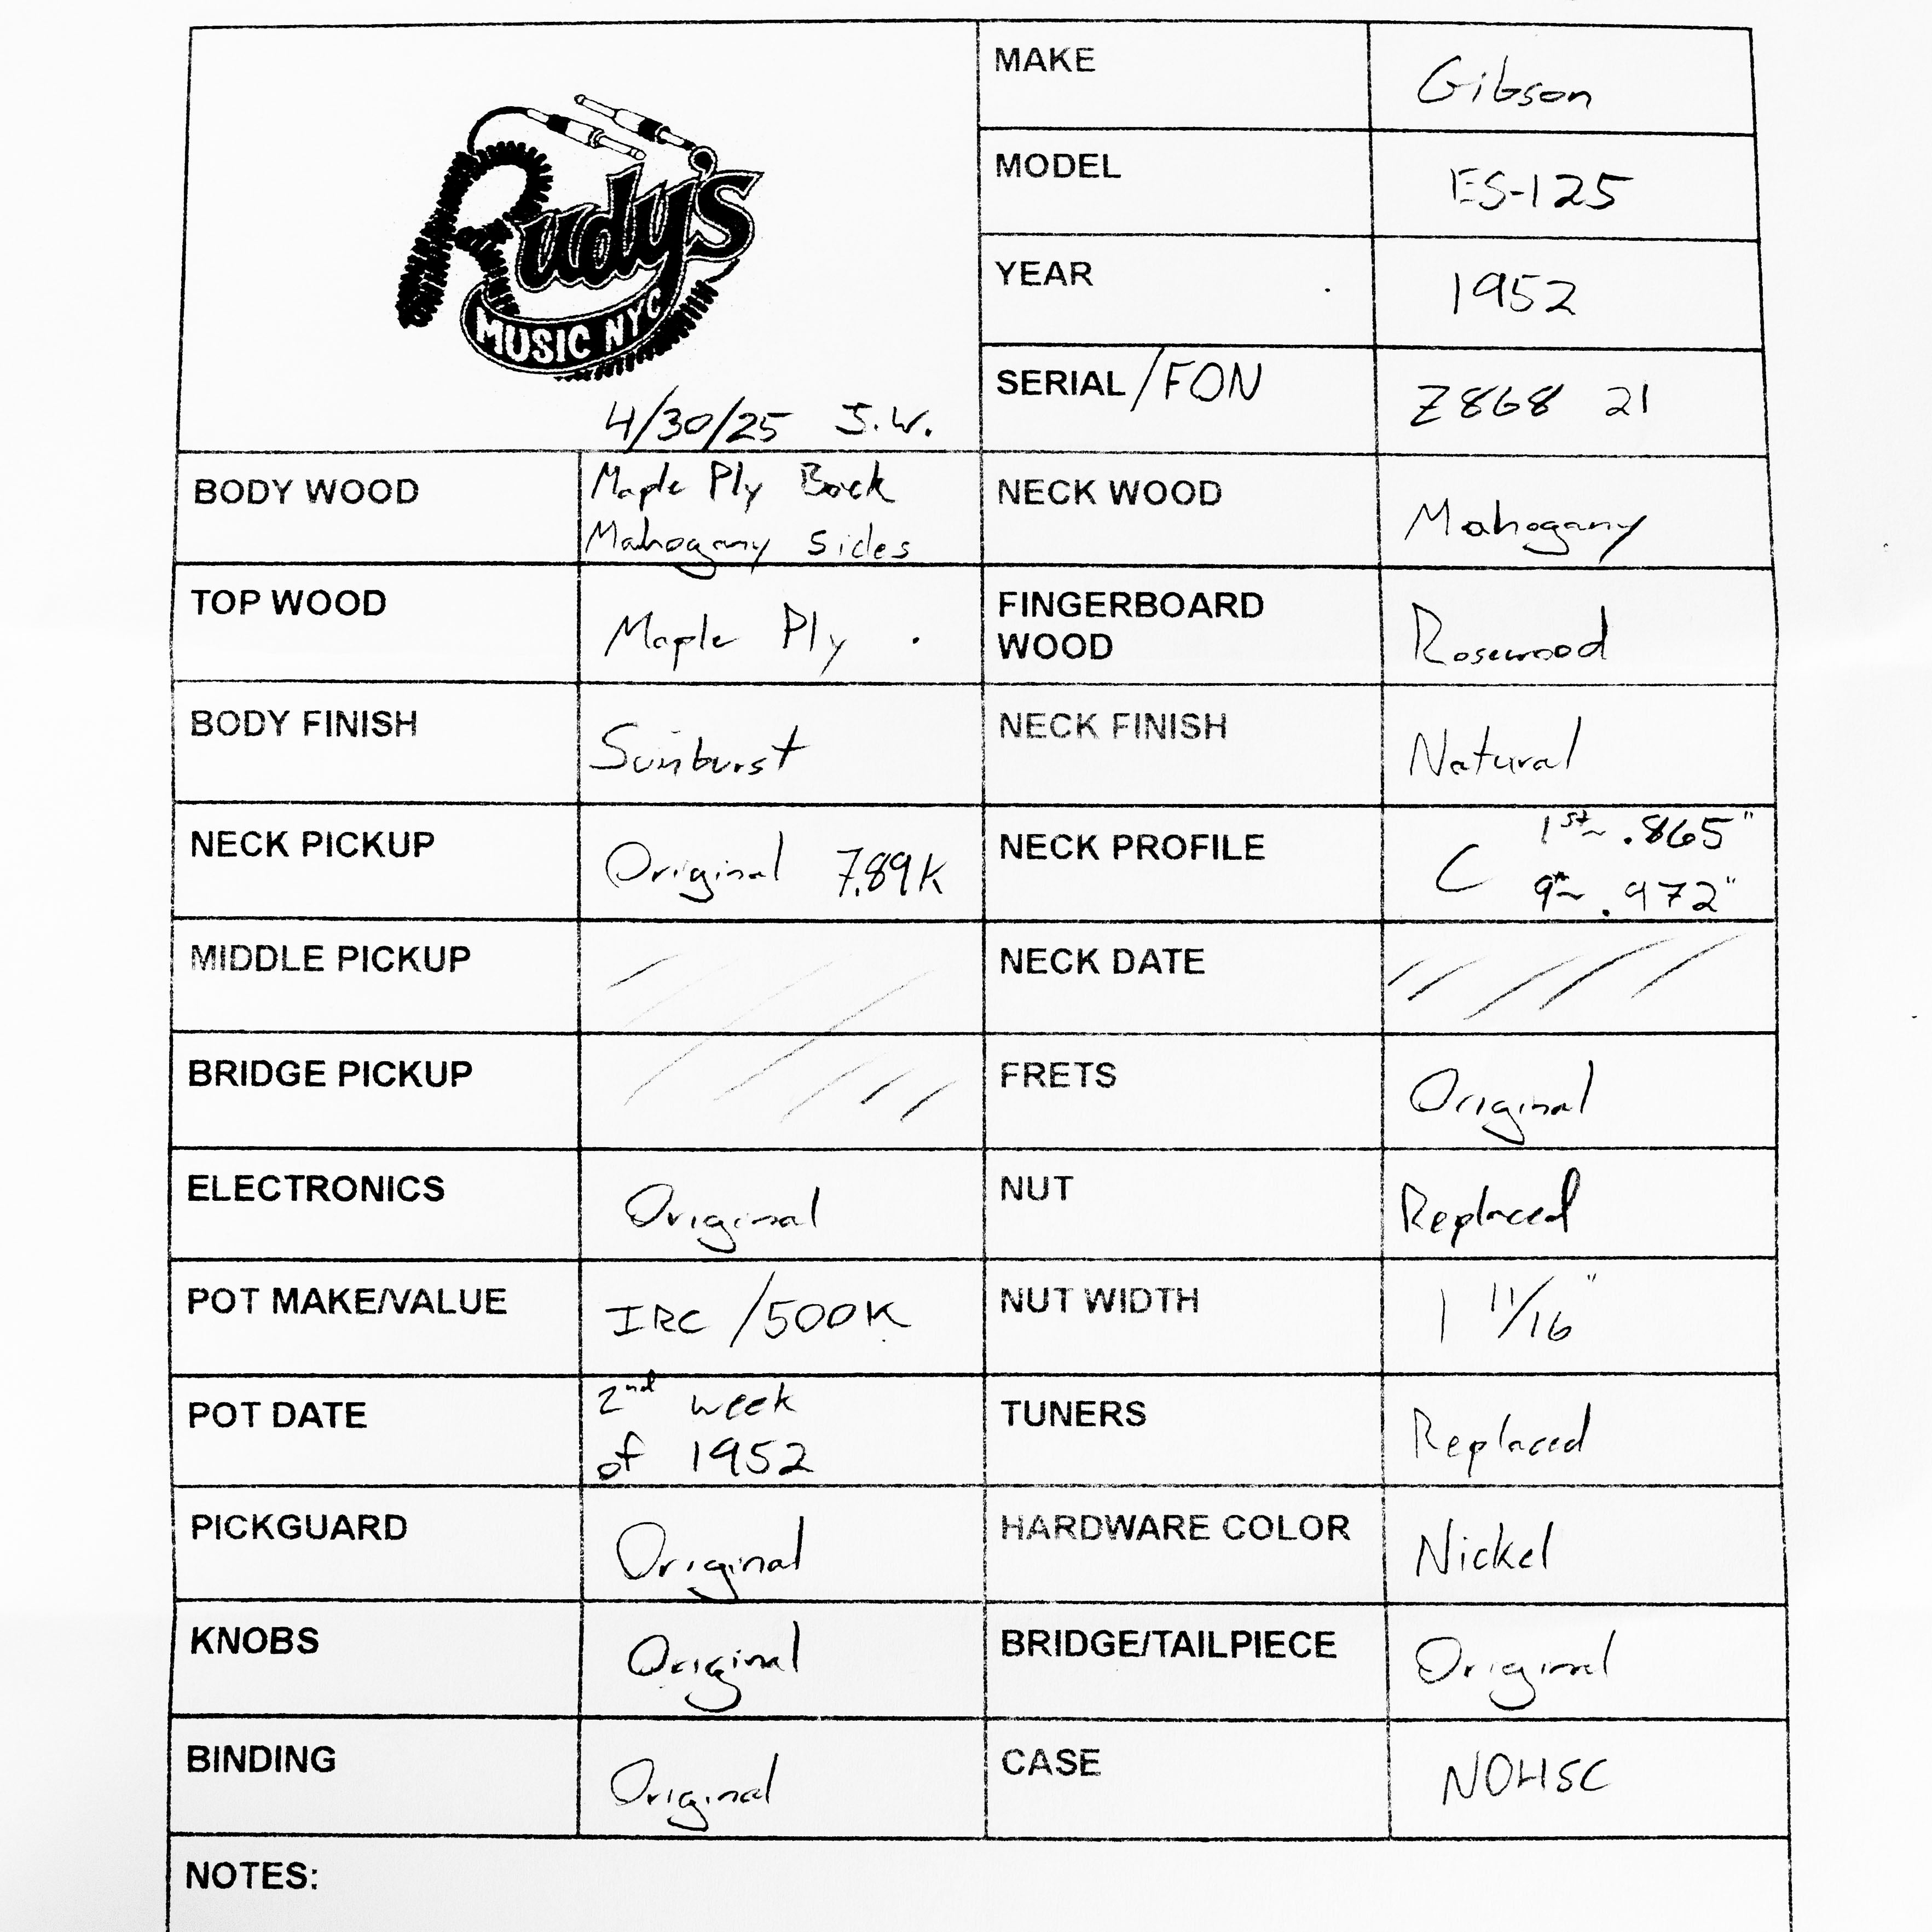 Rudy's
MUSIC NYC
4/30/25 J.W.
MAKE
Gibson
MODEL
ES-125
YEAR
1952
SERIAL/FON
Z868 21
BODY WOOD
Maple Ply Back
Mahogany Sides
NECK WOOD
Mahogany
TOP WOOD
Maple Ply
FINGERBOARD
WOOD
Rosewood
BODY FINISH
Sunburst
NECK FINISH
Natural
NECK PICKUP
Original 7.89K
NECK PROFILE
C
1st~ .865"
9th~ .972"
MIDDLE PICKUP
NECK DATE
BRIDGE PICKUP
FRETS
Original
ELECTRONICS
Original
NUT
Replaced
POT MAKE/VALUE
IRC /500K
NUT WIDTH
1 11/16"
POT DATE
2nd week
of 1952
TUNERS
Replaced
PICKGUARD
Original
HARDWARE COLOR
Nickel
KNOBS
Original
BRIDGE/TAILPIECE
Original
BINDING
Original
CASE
NOHSC
NOTES: